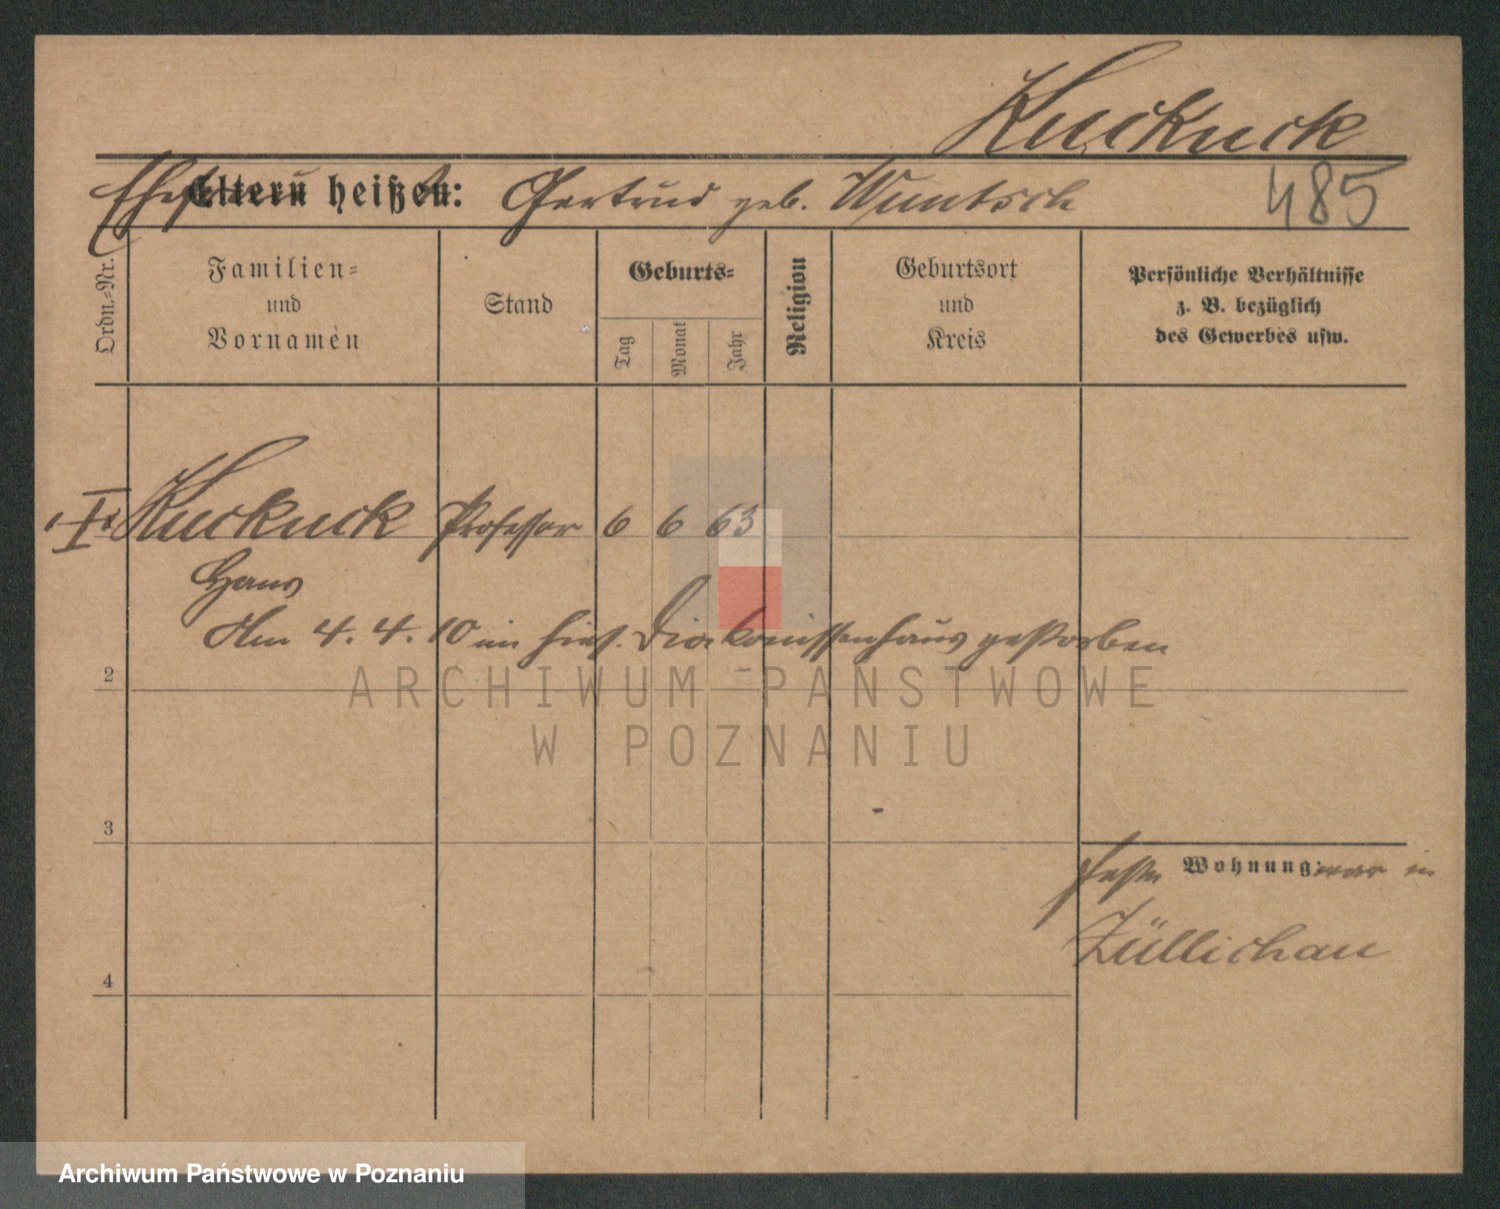 Kuckuck
Ehefrau Eltern heißen: Gertrud geb. Wuntsch
485
Ordn.-Nr.
Familien-
und
Vornamen
Stand
Geburts-
Tag
Monat
Jahr
Religion
Geburtsort
und
Kreis
Persönliche Verhältnisse
z. B. bezüglich
des Gewerbes usw.
I Kuckuck Professor 6 6 63
Hans
Am 4. 4. 10 im hies. Diakonissenhaus gestorben
2
ARCHIWUM PAŃSTWOWE
W POZNANIU
3
Wohnung war in
Züllichau
4
Archiwum Państwowe w Poznaniu